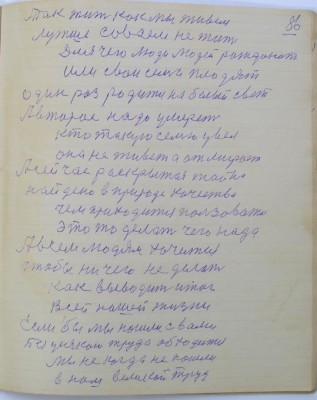 86
Так жит как мы живем
Лутше совсем не жит
Для чего люди людей рождают
Или свои семя плодят
один раз родится на белый свет
А второе надо умереть
Кто такую семю увел
она не живет а отмирает
А сейчас раскрытая тайна
найдено в природе качество
чем приходится ползоватс
Это то делат чего надо
А всем людям хочется
чтобы ничего не делат
Как выводит итог
Всей нашей жизни
Если бы мы пошли с вами
Без всякого труда обходится
мы не когда не пошли
в нам великой труд